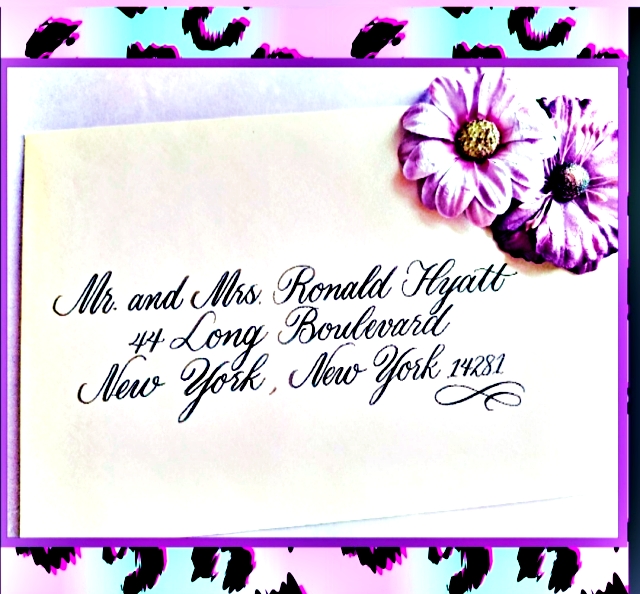 Mr. and Mrs. Ronald Hyatt
44 Long Boulevard
New York, New York 14281